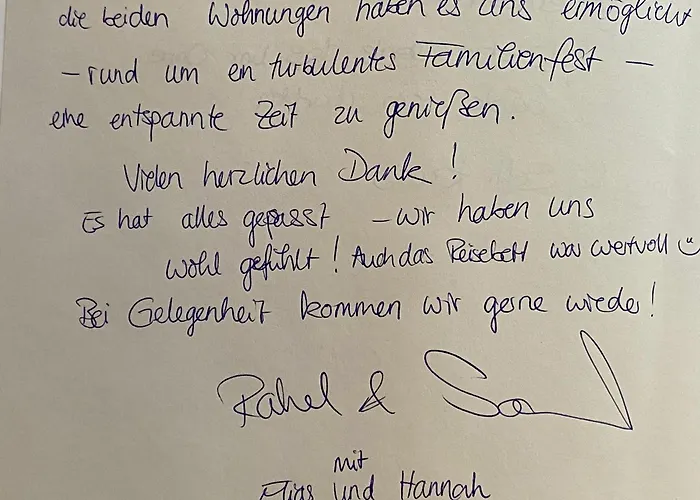 die beiden Wohnungen haben es uns ermöglicht
– rund um ein turbulentes Familienfest –
eine entspannte Zeit zu genießen.
Vielen herzlichen Dank!
Es hat alles gepasst – wir haben uns
wohl gefühlt! Auch das Reisebett war wertvoll ☺
Bei Gelegenheit kommen wir gerne wieder!
Rahel &
mit
Elias und Hannah